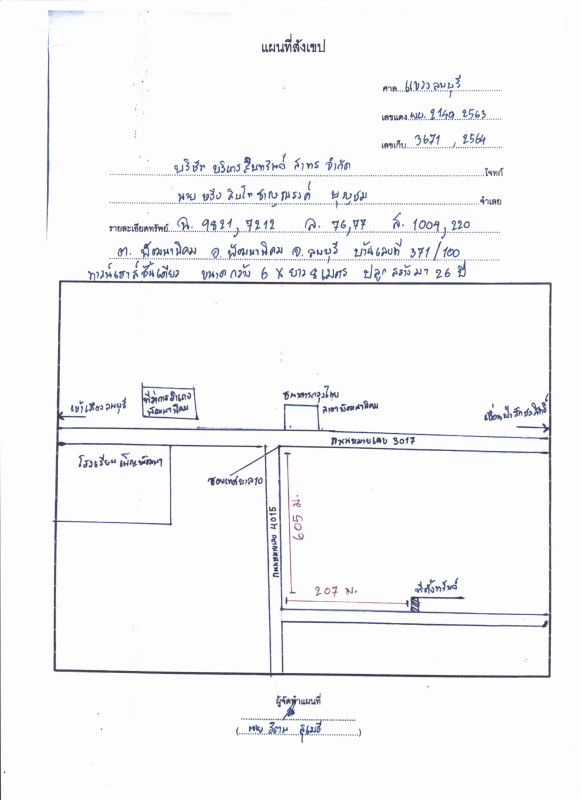 แผนที่สังเขป
ศาล แขวงลพบุรี
เลขแดง ผบ. 2149 2563
เลขเก็บ 3671 , 2564
บริษัท บริหารสินทรัพย์ สาทร จำกัด โจทก์
นาย บุญชม จำเลย
รายละเอียดทรัพย์ ฉ. 9821, 7212 ล. 76,77 ส. 1004, 220
ต. พัฒนานิคม อ. พัฒนานิคม จ. ลพบุรี บ้านเลขที่ 371/100
ทาวน์เฮาส์ชั้นเดียว ขนาดกว้าง 6 X ยาว 8 เมตร ปลูกสร้างมา 26 ปี
เข้าเมืองลพบุรี
ที่ว่าการอำเภอ
พัฒนานิคม
ธนาคารกรุงไทย
สาขาพัฒนานิคม
เขื่อนป่าสักชลสิทธิ์
ถนนหมายเลข 3017
โรงเรียน
ซอยเทศบาล 10
ถนนหมายเลข 4015
605 ม.
207 ม.
ที่ตั้งทรัพย์
ผู้จัดทำแผนที่
( นาย )